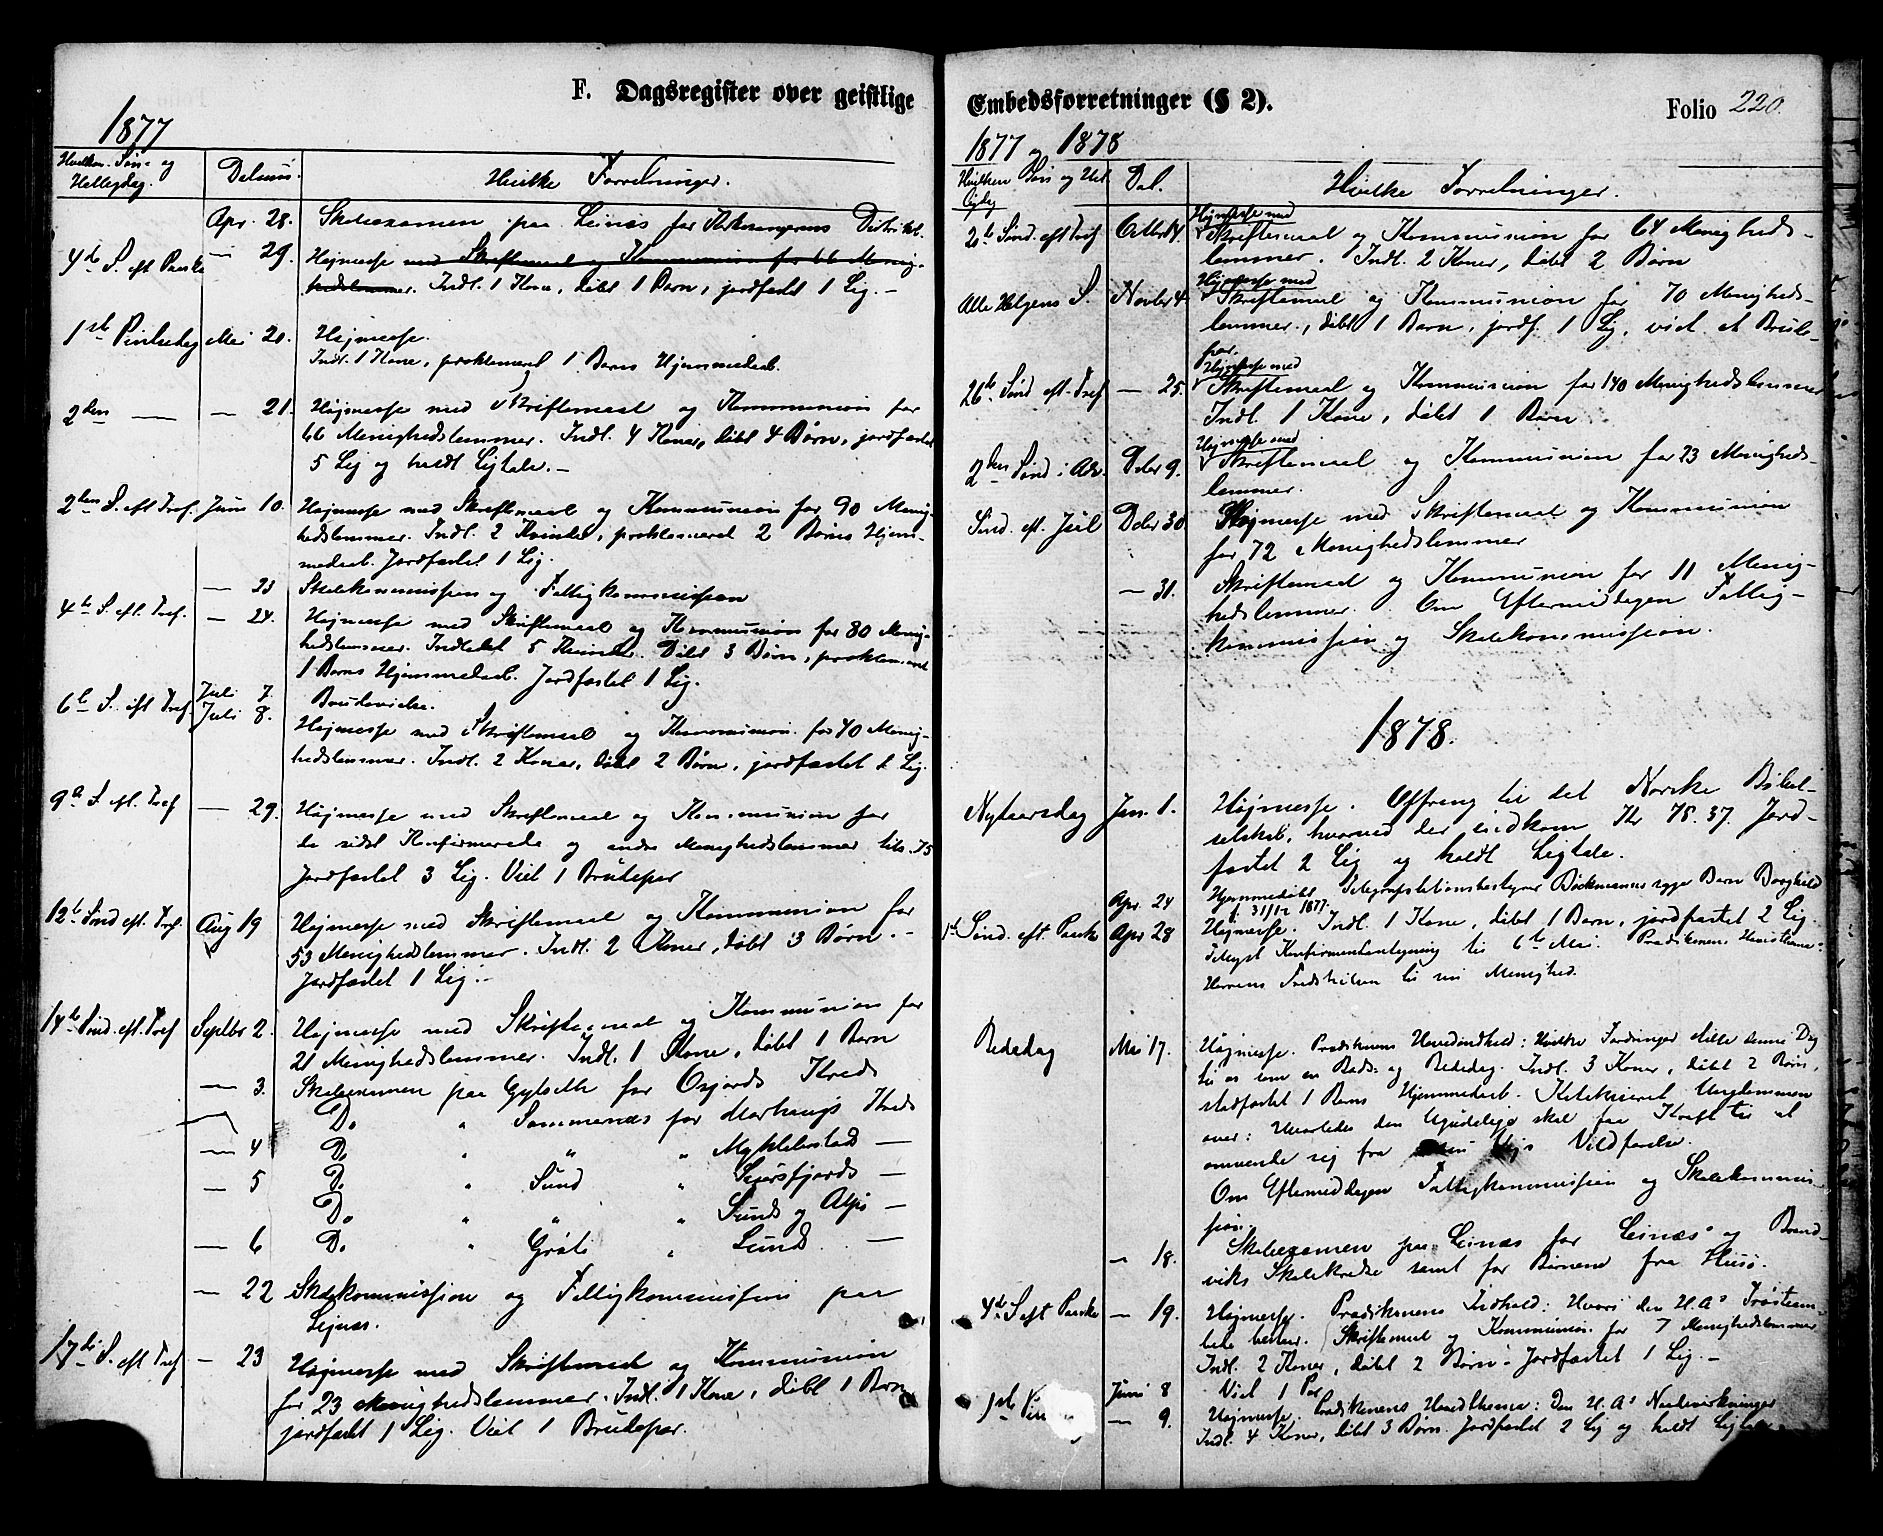 F. Dagsregister over geistlige
1877
Hvilken Søn- og Helligdag. Datum. Hvilke Forretninger.
Apr. 28. Skoleexamen paa Leinæs for Distrikt.
4de S. eft Paaske — 29. Højmesse med Skriftemaal og Kommunion for 66 Menig-
hedslemmer. Indl. 1 Kone, døbt 1 Barn, jordfæstet 1 Lig. —
1ste Pintsedag Mai 20. Højmesse.
Indl. 1 Kone, proklameret 1 Barns Hjemmedaab.
2den — — 21. Højmesse med Skriftemaal og Kommunion for
66 Menighedslemmer. Indl. 4 Koner, døbt 4 Børn, jordfæstet
5 Lig og holdt Ligtale. —
2den S. eft Tref. Juni 10. Højmesse med Skriftemaal og Kommunion for 90 Menig-
hedslemmer. Indl. 2 Kvinder, proklameret 2 Børns Hjem-
medaab. Jordfæstet 1 Lig.
— 23 Skolekommission og Fattigkommission
4de S. eft. Tref. — 24. Højmesse med Skriftemaal og Kommunion for 80 Menig-
hedslemmer. Indledet 5 Kvinder. Døbt 3 Børn, proklameret
1 Barns Hjemmedaab. Jordfæstet 1 Lig.
Juli 7. Brudevielse.
6te S. eft Tref Juli 8. Højmesse med Skriftemaal og Kommunion for 40 Menig-
hedslemmer. Indl. 2 Koner, døbt 2 Børn, jordfæstet 2 Lig.
9de S. eft. Tref — 29. Højmesse med Skriftemaal og Kommunion for
de sidst Konfirmerede og andre Menighedslemmer tils. 75
Jordfæstet 3 Lig. Viet 1 Brudepar
12te Sønd eft. Tref. Aug 19 Højmesse med Skriftemaal og Kommunion for
53 Menighedslemmer. Indl. 2 Koner, døbt 3 Børn. —
Jordfæstet 1 Lig. —
14de Sønd. eft. Tref Septbr 2. Højmesse med Skriftemaal og Kommunion for
21 Menighedslemmer. Indl. 1 Kone, døbt 1 Barn
— 3. Skoleexamen paa Gylseth for Oxfjords Kreds
Do " Sommernæs for Kreds
— 4 Do " " " Myklebostad —
— 5 Do " Sund " Leirfjords —
Do " " " Sunds og Alps —
— 6 Do " " Sund —
— 22 Skolekommission og Fattigkommission paa
Lejnæs.
17de S. eft Tref — 23 Højmesse med Skriftemaal og Kommunion
for 23 Menighedslemmer. Indl. 1 Kone, døbt 1 Barn
jordfæstet 1 Lig. Viet 1 Brudepar.
Embedsforretninger (§ 2).
Folio 220.
1877 og 1878
Hvilken Søn og Hel- ligdag Dat. Hvilke Forretninger.
Højmesse med
20de Sønd. eft Tref Octbr 14. Skriftemaal og Kommunion for 64 Menigheds-
lemmer. Indl. 2 Koner, døbt 2 Børn
Højmesse med
Alle Helgens S. Novbr 4. Skriftemaal og Kommunion for 70 Menigheds-
lemmer, døbt 1 Barn, jordf. 1 Lig, viet et Brude-
par.
Højmesse med
26de Sønd eft. Tref — 25. Skriftemaal og Kommunion for 140 Menighedslemmer
Indl. 1 Kone, døbt 1 Barn
Højmesse med
2den Sønd i Adv. Dcbr 9. Skriftemaal og Kommunion for 23 Menigheds-
lemmer.
Sønd. eft. Jul Dcbr 30 Højmesse med Skriftemaal og Kommunion
for 72 Menighedslemmer
— 31. Skriftemaal og Kommunion for 11 Menig-
hedslemmer. Om Eftermiddagen Fattig-
kommission og Skolekommission.
1878.
Nytaarsdag Jan. 1. Højmesse. Offring til det Norske Bibel-
selskab, hvorved der indkom Kr 75.37. Jord-
fæstet 2 Lig og holdt Ligtale.
Apr. 24 Hjemmedøbt Telegrafstationsbestyrer Bøckmanns syge Barn Borghild
f. 31/12 1877.
1ste Sønd. eft. Paaske Apr 28 Højmesse. Indl. 1 Kone, døbt 1 Barn, jordfæstet 2 Lig.
Tillyst Konfirmantantegning til 6te Mai. Prædikenens
Herrens Fredshilsen til sin Menighed.
Bededag Mai 17. Højmesse. Prædikenens Hovedindhold: Hvilke Fordringer stiller denne Dag
til os som en Bods- og Bededag. Indl. 3 Koner, døbt 2 Børn,
stadfæstet 1 Barns Hjemmedaab. Katekiseret Ungdommen
over: Hvorledes den Ugudelige skal faa Kraft til at
omvende sig fra Vejs Vildfarelse.
Om Eftermiddagen Fattigkommission og Skolekommis-
sion.
— 18. Skoleexamen paa Leinæs for Leinæs og Brand-
viks Skolekredse samt for Børnene fra Husø.
4de S eft Paaske — 19. Højmesse. Prædikenens Indhold: Hvori den H. A's Trøsteem-
bede bestaar. Skriftemaal og Kommunion for 7 Menighedslemmer
Indl. 2 Koner, døbt 2 Børn. Jordfæstet 1 Lig. —
Juni 8 Viet 1 Par
1ste Pin — 9. Højmesse. Prædikenens Hovedthema: Den H. A's Naadevirkninger
Indl. 4 Koner, døbt 3 Børn. Jordfæstet 2 Lig og holdt Ligtale